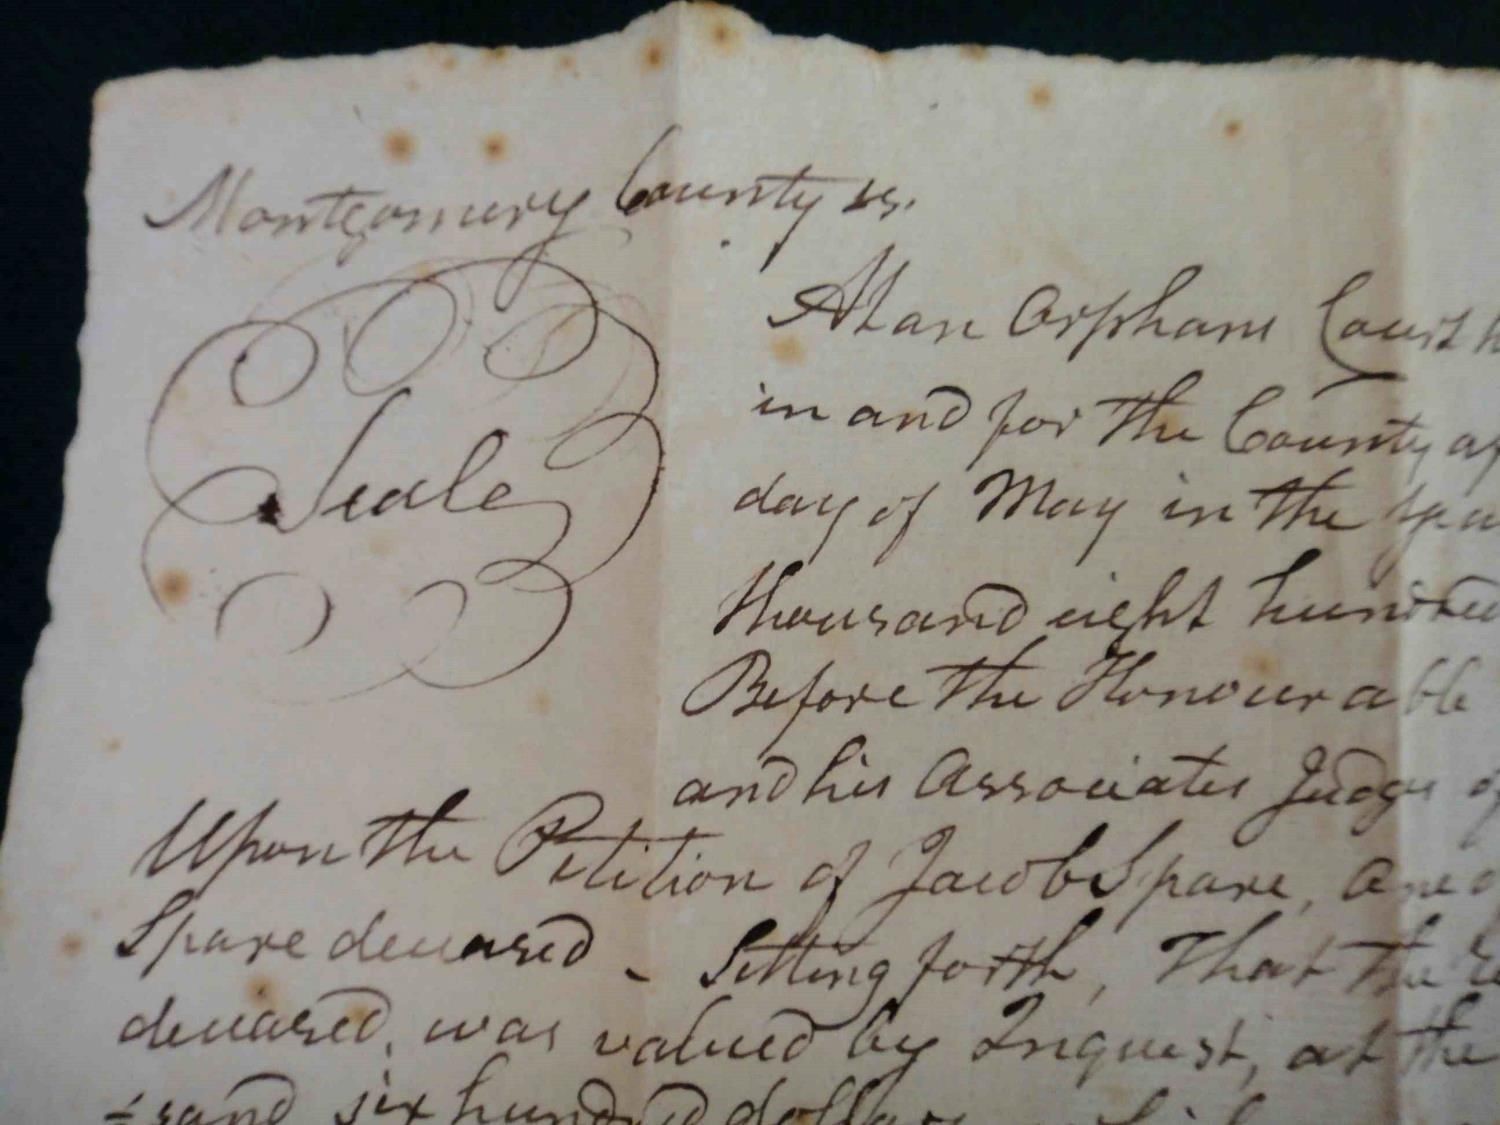 Montgomery County ss.
At an Orphans Court
Seale
in and for the County of
day of May in the
thousand eight hundred
Before the Honourable
and his Associates Judges of
Upon the Petition of Jacob Spare,
Spare deceased – Setting forth, That the
deceased, was valued by Inquest, at the
=sand six hundred dollars